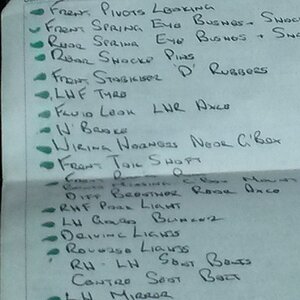 Front Pivots Looking
Front Spring Eye Bushes + Shoc
Rear Spring Eye Bushes + Sh
Rear Shocks Pins
Front Stabiliser 'D' Rubbers
LHF Tyre
Fluid Leak LHR Axle
H' Brake
Wiring Harness Near G'Box
Front Tail Shaft
Mount
Diff Breather Rear Axle
RHF Park Light
LH Guard Blinker
Driving Lights
Reverse Lights
RH - LH Seat Belts
Centre Seat Belt
LH Mirror